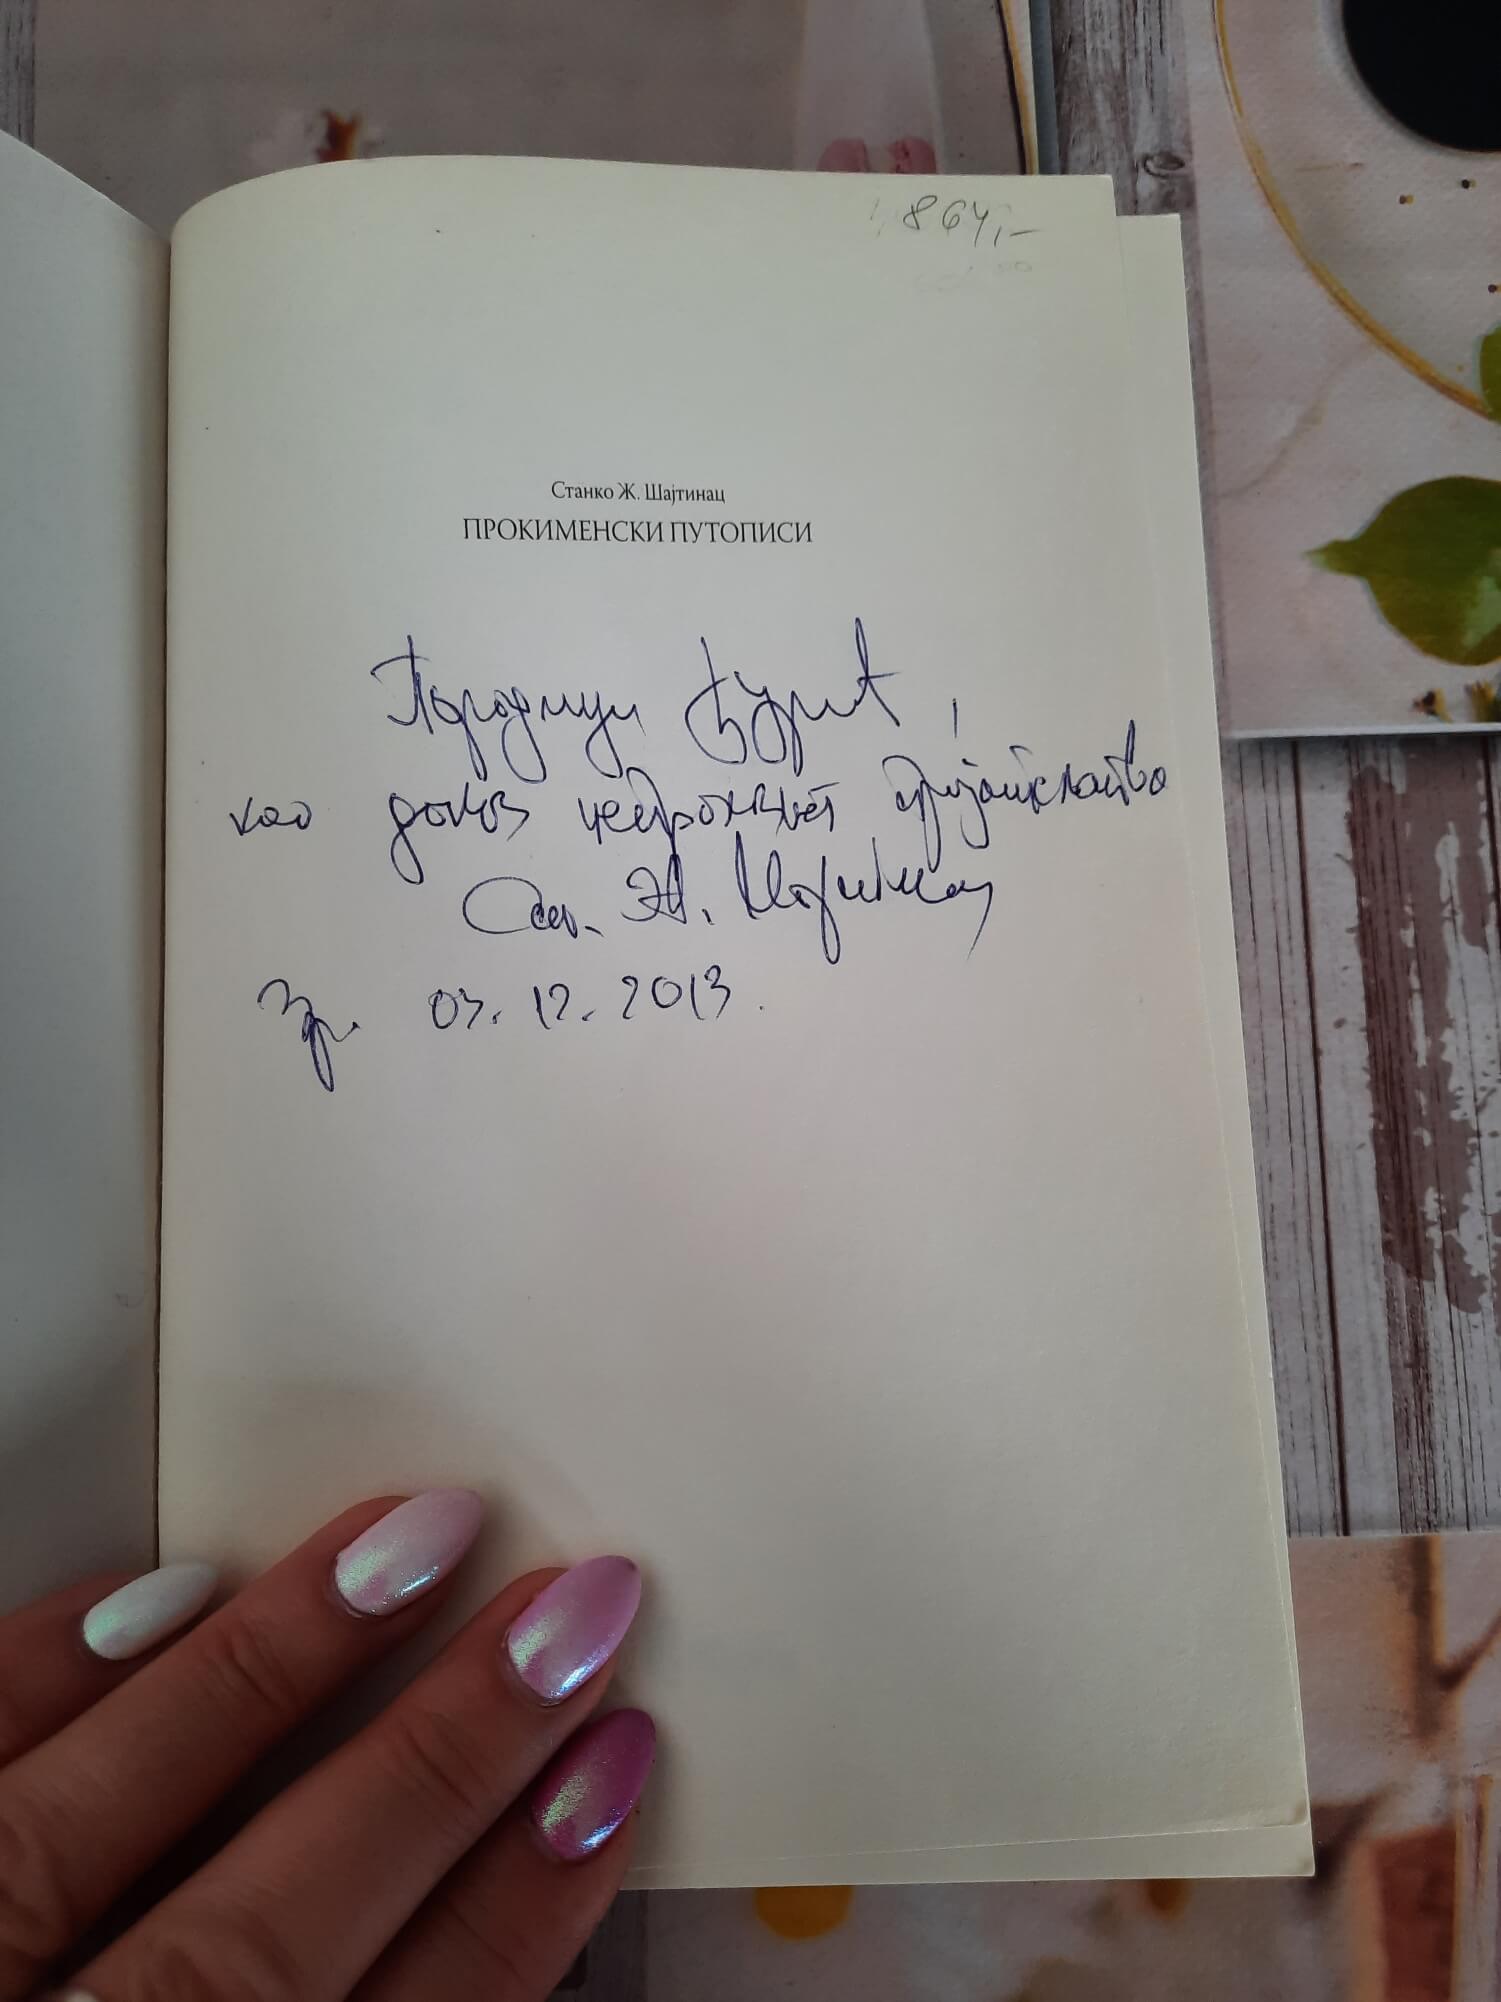 864,-
Станко Ж. Шајтинац
ПРОКИМЕНСКИ ПУТОПИСИ
Породици Ђурић,
као доказ пријатељства
Ж. Шајтинац
Зр. 03.12.2013.